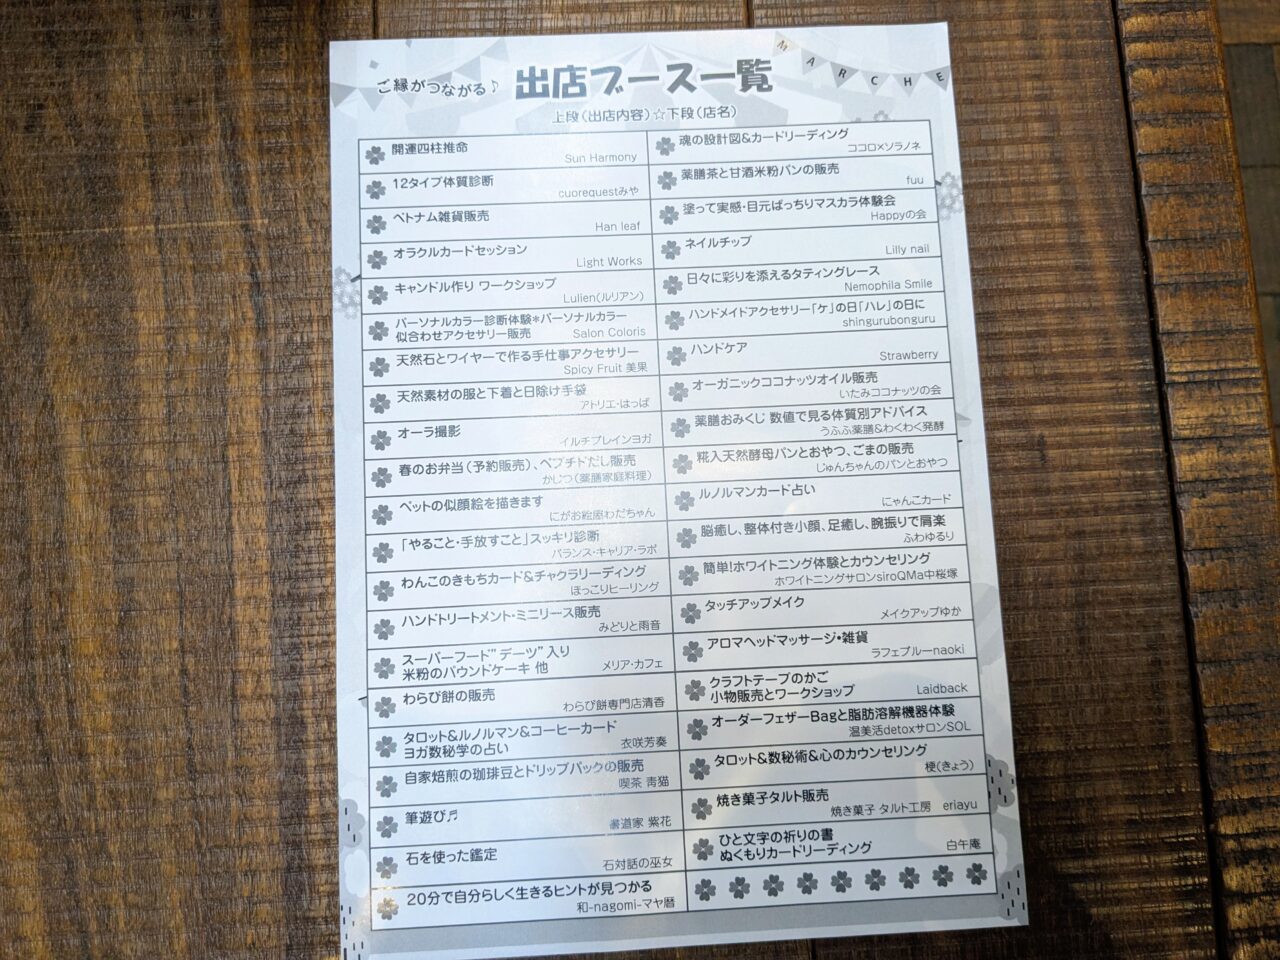 ご縁がつながる♪
出店ブース一覧
MARCHE
上段(出店内容)☆下段(店名)
開運四柱推命
Sun Harmony
12タイプ体質診断
cuorequestみや
ベトナム雑貨販売
Han leaf
オラクルカードセッション
Light Works
キャンドル作り ワークショップ
Lulien(ルリアン)
パーソナルカラー診断体験*パーソナルカラー
似合わせアクセサリー販売 Salon Coloris
天然石とワイヤーで作る手仕事アクセサリー
Spicy Fruit 美果
天然素材の服と下着と日除け手袋
アトリエ・はっぱ
オーラ撮影
イルチブレインヨガ
春のお弁当(予約販売)、ペプチドだし販売
かじつ(薬膳家庭料理)
ペットの似顔絵を描きます
にがお絵屋わだちゃん
「やること・手放すこと」スッキリ診断
バランス・キャリア・ラボ
わんこのきもちカード&チャクラリーディング
ほっこりヒーリング
ハンドトリートメント・ミニリース販売
みどりと雨音
スーパーフード"デーツ"入り
米粉のパウンドケーキ 他 メリア・カフェ
わらび餅の販売
わらび餅専門店清香
タロット&ルノルマン&コーヒーカード
ヨガ数秘学の占い 衣咲芳奏
自家焙煎の珈琲豆とドリップパックの販売
喫茶 青猫
筆遊び♬
書道家 紫花
石を使った鑑定
石対話の巫女
20分で自分らしく生きるヒントが見つかる
和-nagomi-マヤ暦
魂の設計図&カードリーディング
ココロ×ソラノネ
薬膳茶と甘酒米粉パンの販売
fuu
塗って実感・目元ぱっちりマスカラ体験会
Happyの会
ネイルチップ
Lilly nail
日々に彩りを添えるタティングレース
Nemophila Smile
ハンドメイドアクセサリー「ケ」の日「ハレ」の日に
shingurubonguru
ハンドケア
Strawberry
オーガニックココナッツオイル販売
いたみココナッツの会
薬膳おみくじ 数値で見る体質別アドバイス
うふふ薬膳&わくわく発酵
糀入天然酵母パンとおやつ、ごまの販売
じゅんちゃんのパンとおやつ
ルノルマンカード占い
にゃんこカード
脳癒し、整体付き小顔、足癒し、腕振りで肩楽
ふわゆるり
簡単!ホワイトニング体験とカウンセリング
ホワイトニングサロンsiroQMa中桜塚
タッチアップメイク
メイクアップゆか
アロマヘッドマッサージ・雑貨
ラフェブルーnaoki
クラフトテープのかご
小物販売とワークショップ Laidback
オーダーフェザーBagと脂肪溶解機器体験
温美活detoxサロンSOL
タロット&数秘術&心のカウンセリング
梗(きょう)
焼き菓子タルト販売
焼き菓子 タルト工房 eriayu
ひと文字の祈りの書
ぬくもりカードリーディング 白午庵